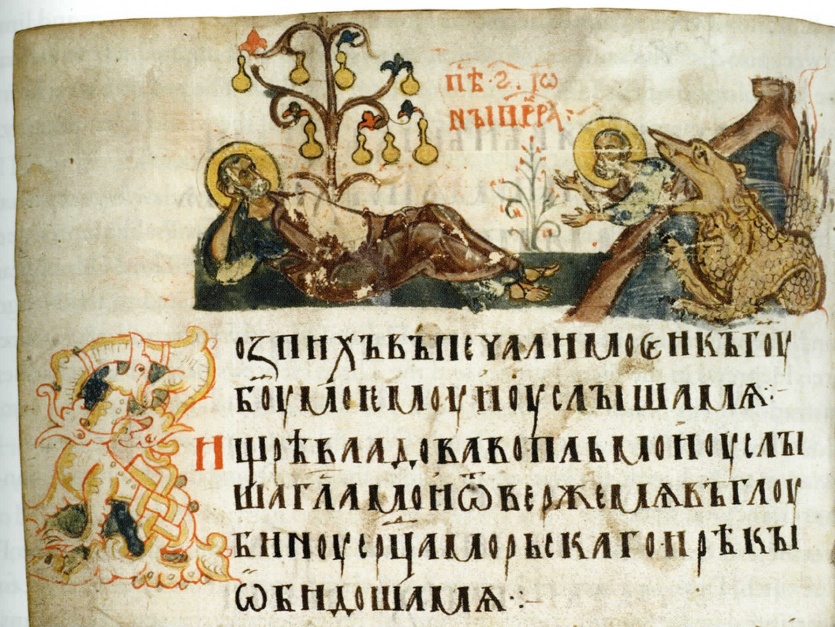 пѣ·ѕ҃·їѡ
нꙑпррⷪ҇ка·:
оꙁпихъвъпечалимоѥикъгоу
б҃оумоѥмоуиоуслꙑшамѧ·:
ищрѣвладовавопльмоиоуслꙑ
шагл҃амоиѿвержемѧвъглоу
бинꙑсерⷣцамморьскагоирѣкꙑ
ѡбидошамѧ·: